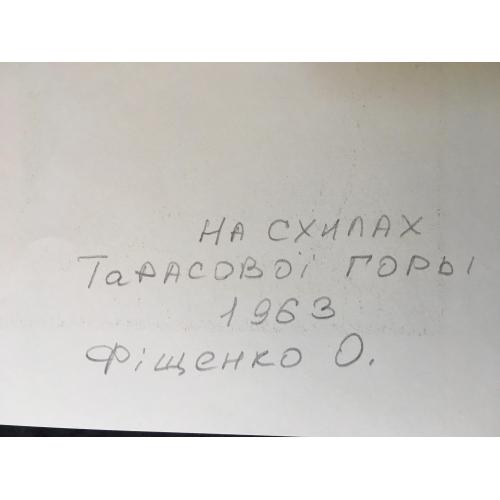 НА СХИЛАХ
ТаРАСОВОЇ ГОРЫ
1963
Фіщенко О.